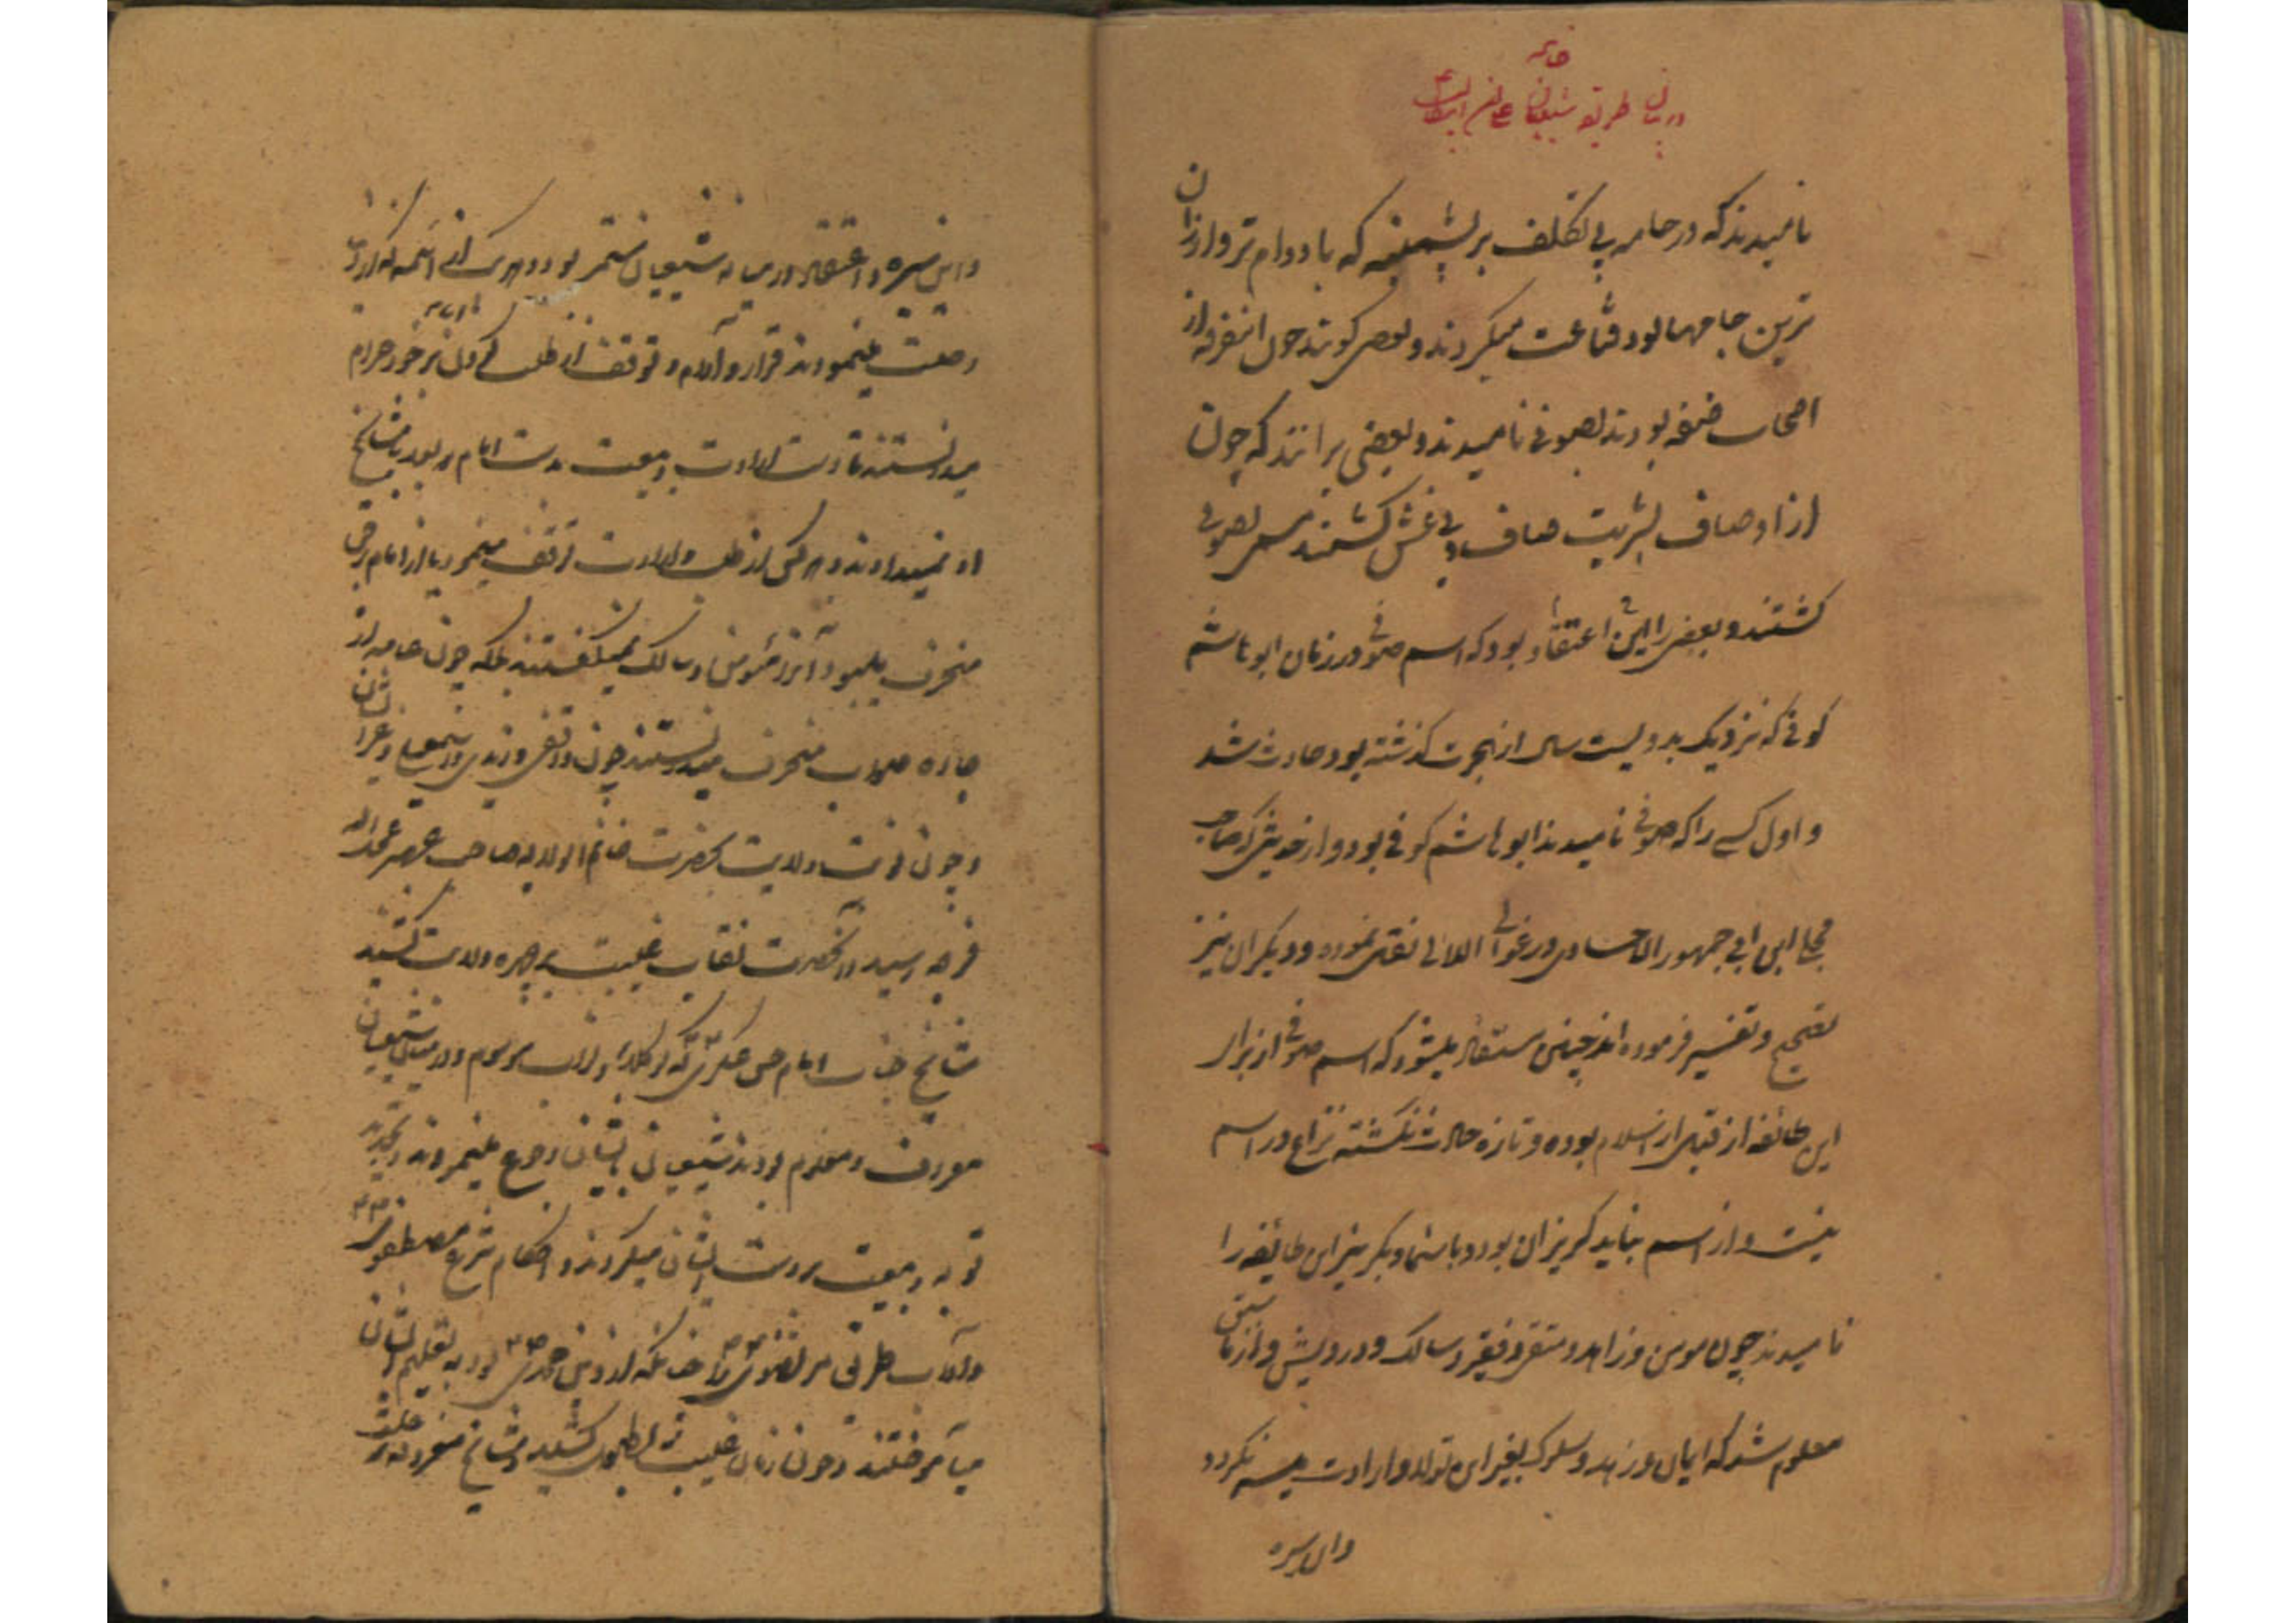 خاتمه
در بیان طریقه شیعیان
نامیدند که در جامه بی تکلف بر پشمینه که با دوام تر و ارزان
ترین جامها بود قناعت میکردند و بعضی گویند چون اینفرقه از
اصحاب صفه بودند بصوفی نامیدند و بعضی برانند که چون
از اوصاف بشریت صاف و بی غش گشتند مسمی بصوفی
گشتند و بعضی را این اعتقاد بود که اسم صوفی در زمان ابو هاشم
کوفی که نزدیک بدویست سال از هجرت گذشته بود حادث شد
و اول کسی را که صوفی نامیدند ابو هاشم کوفی بود و از
مجلی ابن ابی جمهور الاحسادی در غوالی اللالی نقل نموده و دیگران نیز
تصحیح و تفسیر فرموده اند چنین مستفاد میشود که اسم صوفی از برای
این طائفه از قبل از اسلام بوده و تازه حادث نگشته نزاع در اسم
نیست و از اسم نباید گریزان بود و باسماء دیگر نیز این طائفه را
نامیدند چون مومن و زاهد و متقی و فقیر و سالک و درویش و از
معلوم شد که ایمان و زهد و سلوک بغیر این تولا و ارادت میسر نگردد
و این سیره
و این سیره و اعتقاد در میانه شیعیان مستمر بود و هر یک از ائمه که
رحلت مینمودند قرار و آرام و توقف از طلب را بر خود حرام
میدانستند تا دست ارادت و بیعت بدست امام بعد یا مشایخ
او نمیدادند و هر کس از طلب و ارادت توقف مینمود یا از امام برحق
منحرف میبود آنرا مؤمن و سالک نمیگفتند بلکه چون عامه از
جاده صواب منحرف میدانستند چون واقفی و زیدی و
و چون نوبت ولایت بحضرت خاتم الولایه صاحب العصر عجل الله
فرجه رسید و آنحضرت نقاب غیبت بر چهره ولایت کشید
مشایخ جناب امام حسن عسکری که بوکلاء و نواب موسوم و در میان شیعیان
معروف و معلوم بودند شیعیان بایشان رجوع مینمودند و تجدید
توبه و بیعت بر دست ایشان میکردند و احکام شرع مصطفوی
و آداب طریق مرتضوی را چنانکه بود بتعلیم ایشان
میآموختند و چون زمان غیبت بطول کشید و مشایخ